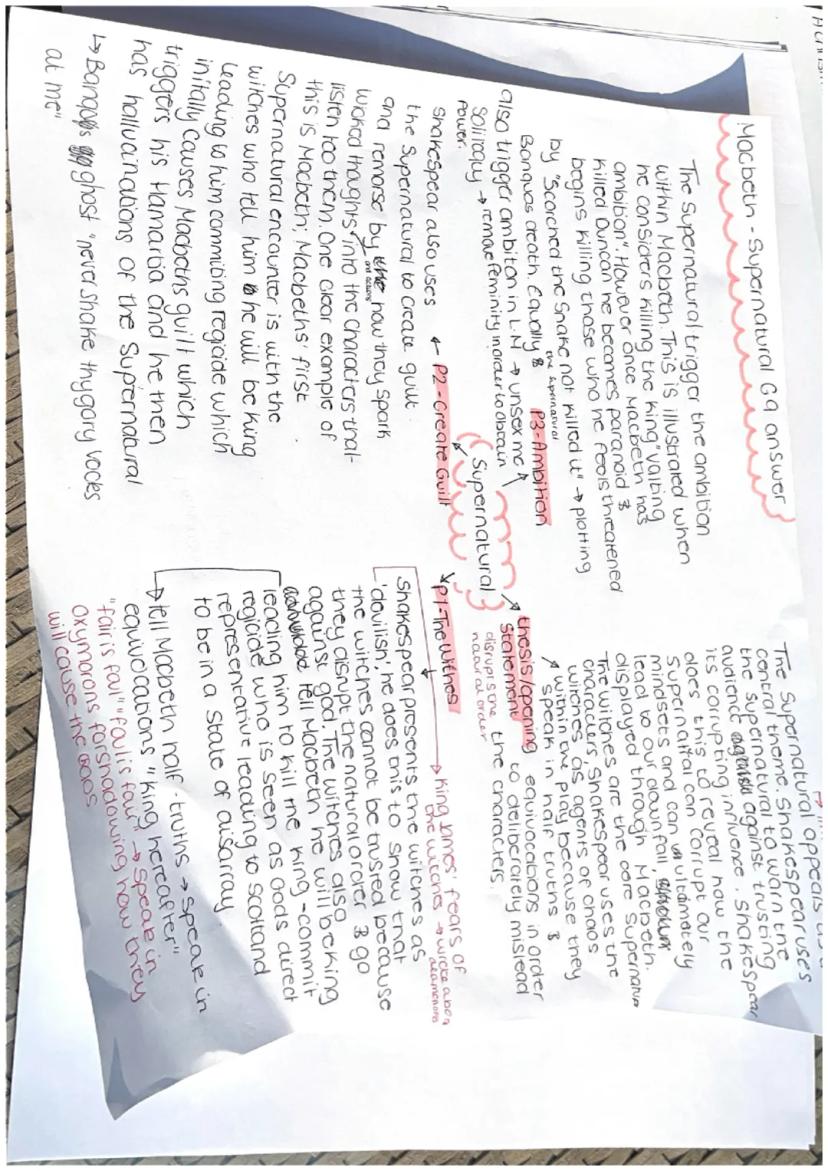 Macbeth - Supernatural G9 answer
The supernatural appears as a
central theme. Shakespear uses
the supernatural to warn the
audience against trusting
its corrupting influence. Shakespear
does this to reveal how the
Supernatral can corrupt our
mindsets and can ultimately
lead to our downfall,
displayed through Macbeth.
The witches are the core Supernatural
characters Shakespear uses the
witches as agents of chaos
within the play because they
speak in half truths &
equivocations in order
to deliberately mislead
the characters.
thesis/opening
Statement
disrupts the
natural order
Supernatural
P1-The Witches
King James' fears of
the witches → wrote
Shakespear presents the witches as
'devilish', he does this to show that
the witches cannot be trusted because
they disrupt the natural order & go
against god. The witches also
tell Macbeth he will be king
leading him to kill the king - commit
regicide who is seen as Gods direct
representative leading to scotland
to be in a state of disarray
→ tell Macbeth half-truths → speak in
equivocations "king hereafter"
"fair is foul" "foul is fair" → Speak in
Oxymorons forshadowing how they
will cause the
P2 - Create Guilt
Shakespear also uses
the supernatural to create guilt
and remorse by how they spark
wicked thoughts and actions into the characters that
listen too them. One clear example of
this is Macbeth; Macbeths' first
Supernatural encounter is with the
witches who tell him he will be king
leading to him commiting regicide which
initally causes Macbeths guilt which
triggers his Hamartia and he then
has hallucinations of the Supernatural
↳ Banquos ghost "never shake thy gory locks
at me"
P3 - Ambition
The supernatural trigger the ambition
within Macbeth. This is illustrated when
he considers killing the king "valting
ambition". However once Macbeth has
killed Duncan he becomes paranoid &
begins killing those who he feels threatened
by "scorched the snake not killed it" → plotting
Banquos death. Equally the supernatural
also trigger ambition in L.M → unsex me
Soliloquy → remove feminity in order to obtain
power.